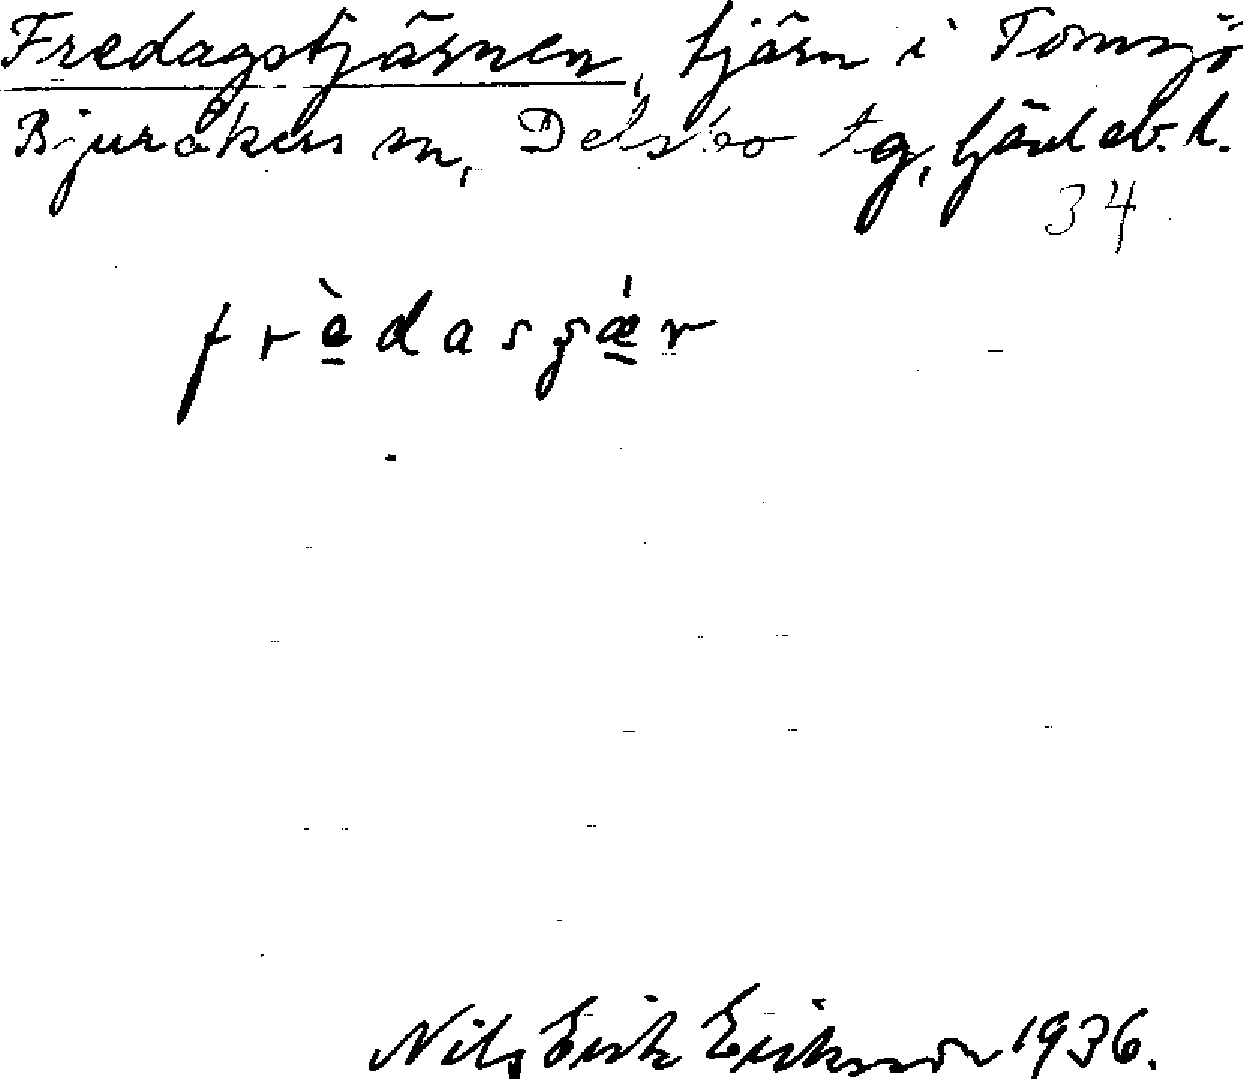 Fredagstjärnen, tjärn i Tomsjö
Bjuråkers sn, Delsbo tg, Gävleb. l.
34
frèdasʂǽr
Nils Erik Eriksson 1936.